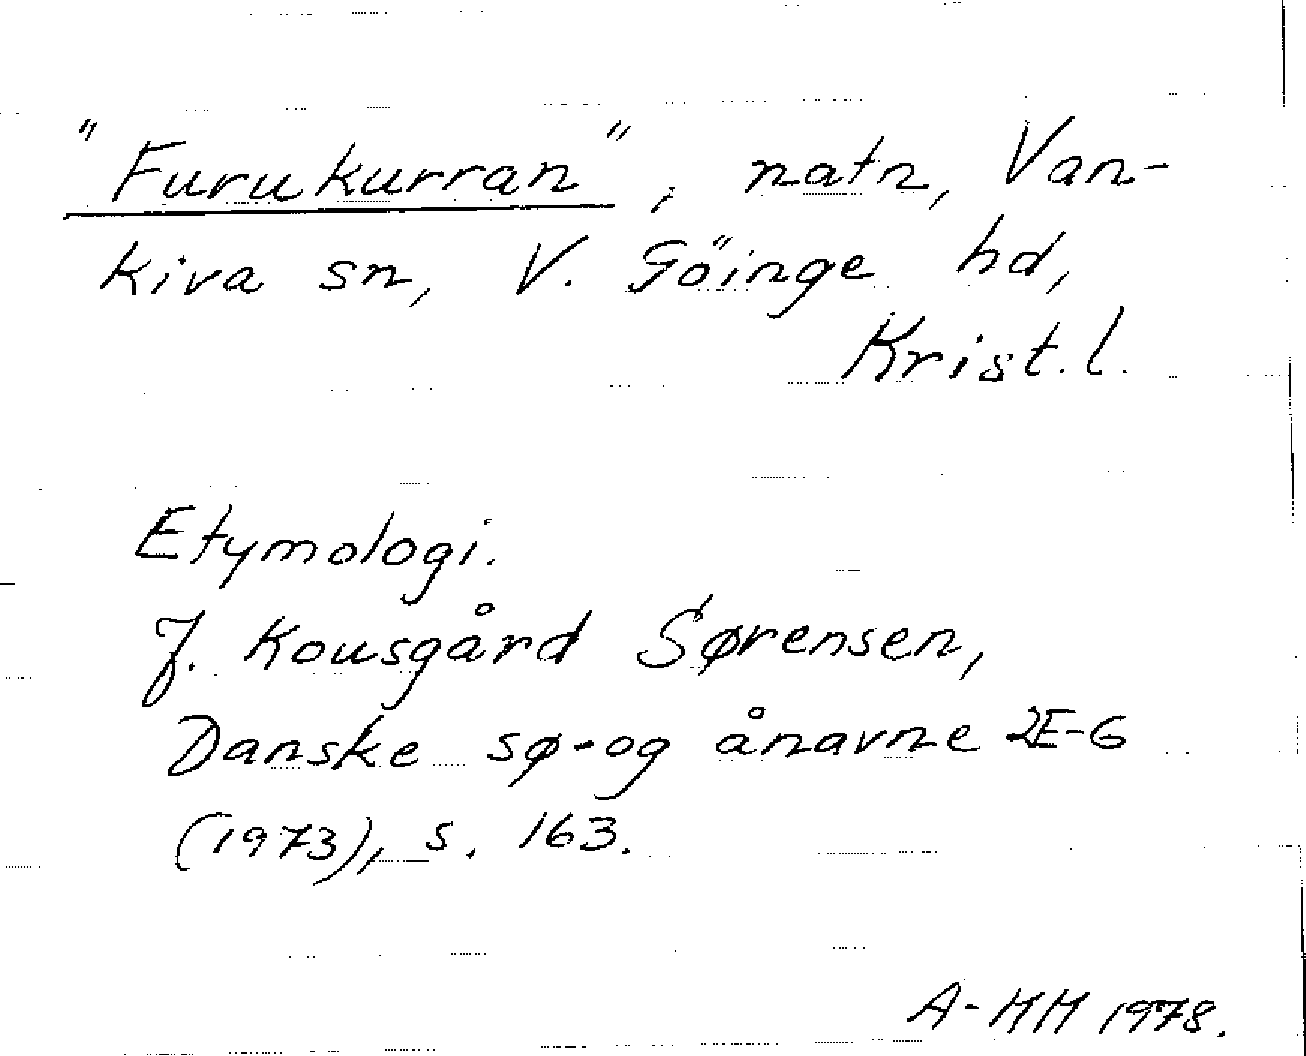 "Furukurran", natn, Van-
kiva sn, V. Göinge hd,
Krist. l.
Etymologi.
J. Kousgård Sørensen,
Danske sø- og ånavne 2E-G
(1973), s. 163.
A-MM 1978.